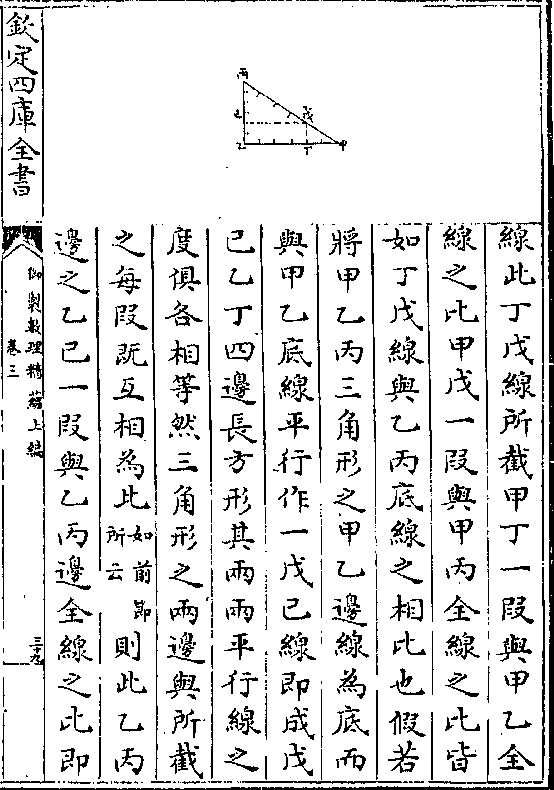 線此丁戊線所截甲丁一段與甲乙全
線之比甲戊一段與甲丙全線之比皆
如丁戊線與乙丙底線之相比也假若
將甲乙丙三角形之甲乙邊線為底而
與甲乙底線平行作一戊己線即成戊
己乙丁四邊長方形其兩兩平行線之
度俱各相等然三角形之兩邊與所截
之每段既互相為此如前節所云則此乙丙
邊之乙己一段與乙丙邊全線之比即
欽定四庫全書
御製數理精蘊上編
卷三
三十九
丙
己
戊
乙
丁
甲